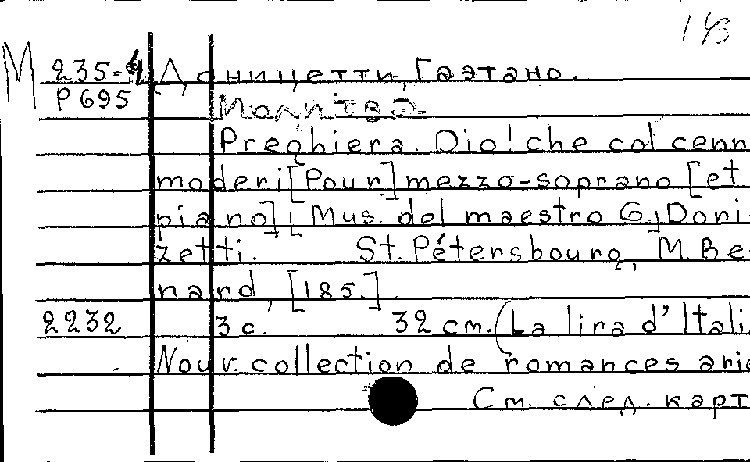 1 1/3
M 235-4 Доницетти, Гаэтано.
P 695 Молитва.
Preghiera. Dio! che col cenn
moderi [Pour] mezzo-soprano [et
piano] [Mus. del maestro G.] Doni
zetti. St. Pétersbourg, M. Be-
nard, [185.].
2232 3 с. 32 cm. (La lira d'Itali
Nouv. collection de romances arie
См. след. карт